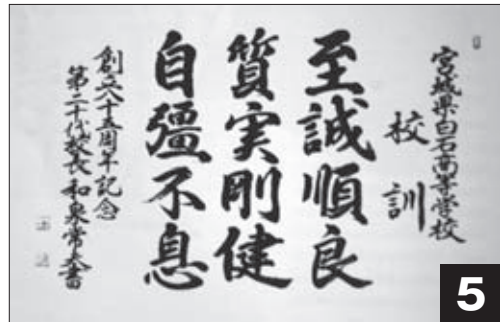 宮城県白石高等学校
校訓
至誠順良
質実剛健
自彊不息
創立八十五周年記念
第二十代校長 和泉常夫書
5